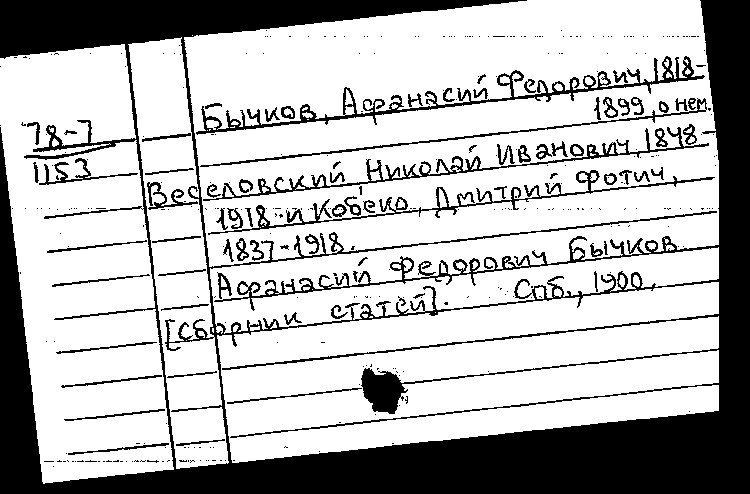 Бычков, Афанасий Федорович, 1818-
1899, о нем.
78-7
1153
Веселовский Николай Иванович, 1848-
1918 и Кобеко, Дмитрий Фотич,
1837-1918.
Афанасий Федорович Бычков
[сборник статей]. Спб., 1900.